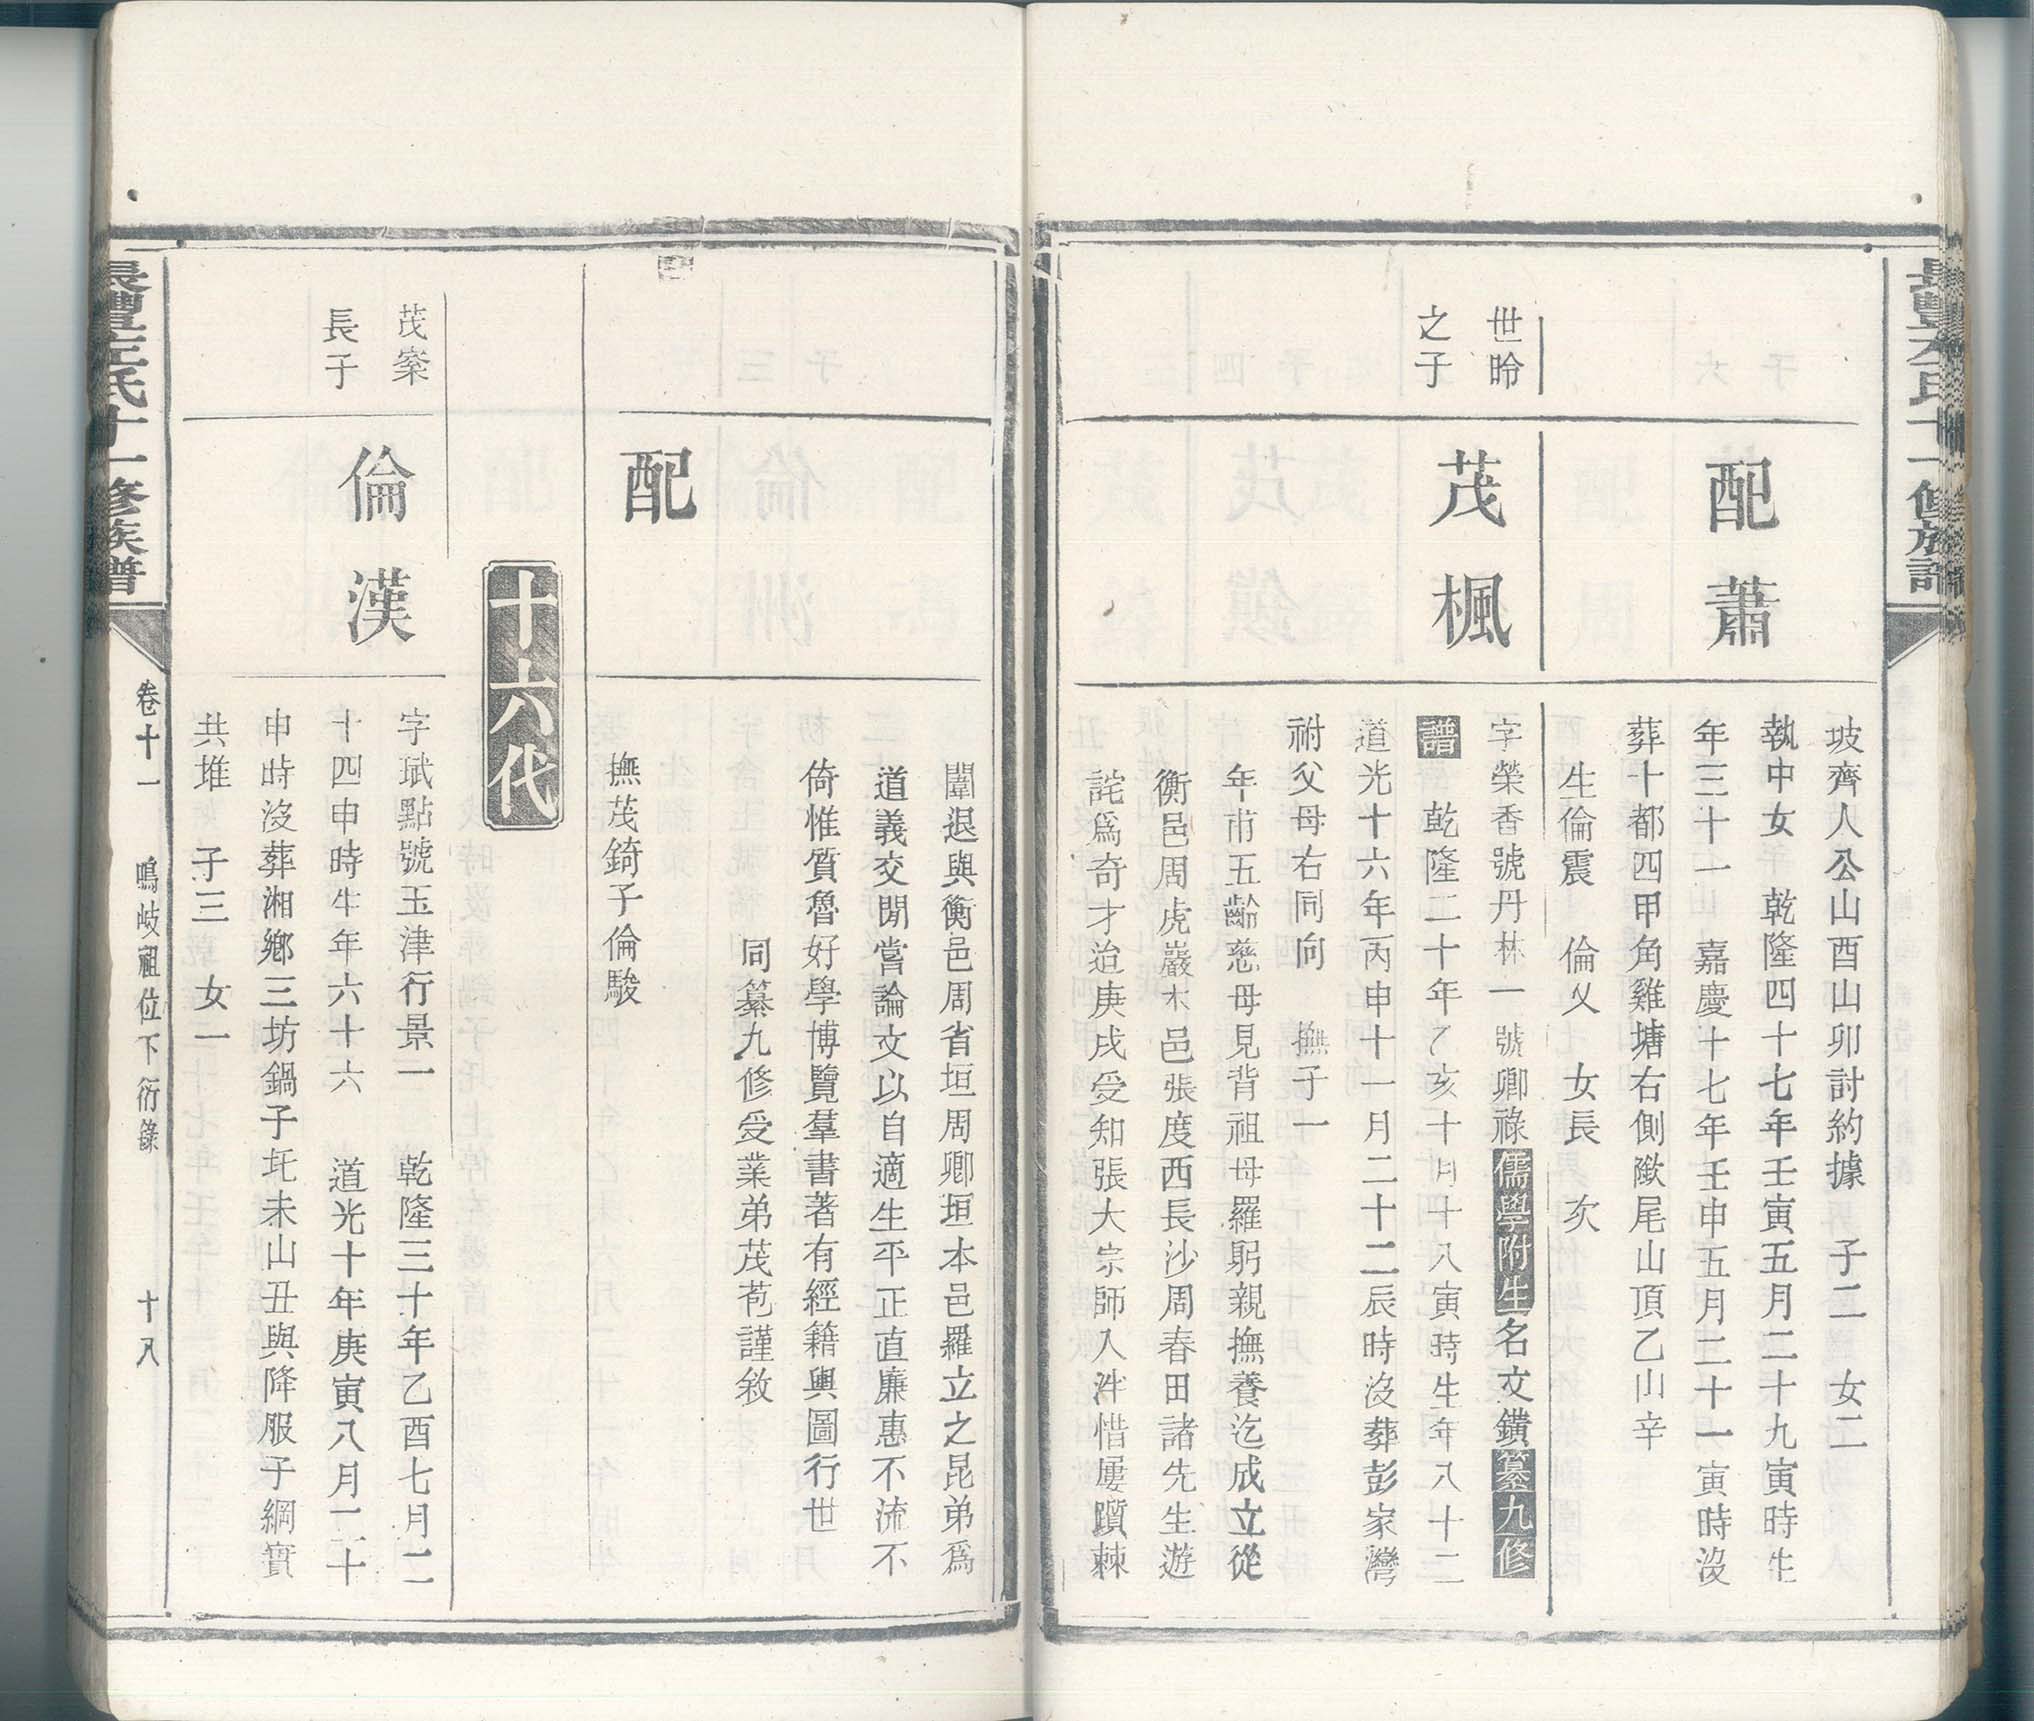 坡齊人公山酉山卯討約據　子二　女二
配蕭
執中女　乾隆四十七年壬寅五月二十九寅時生
年三十一　嘉慶十七年壬申五月二十一寅時沒
葬十都四甲角雞塘右側歐尾山頂乙山辛
生倫震　倫乂　女長　次
世昤
之子
茂楓
字榮香號丹林一號卿祿儒學附生名文鐄纂九修
譜　乾隆二十年乙亥十月十八寅時生年八十二
道光十六年丙申十一月二十二辰時沒葬彭家灣
祔父母右同向　撫子一
年甫五齡慈母見背祖母羅躬親撫養迄成立從
衡邑周虎巖本邑張度西長沙周春田諸先生遊
詫爲奇才迨庚戌受知張大宗師入泮惜屢躓棘
闈退與衡邑周省垣周卿垣本邑羅立之昆弟爲
道義交閒嘗論文以自適生平正直廉惠不流不
倚惟質魯好學博覽羣書著有經籍輿圖行世
同纂九修受業弟茂苞謹敘
配
撫茂錡子倫駿
十六代
茂案
長子
倫漢
字珷點號玉津行景一　乾隆三十年乙酉七月二
十四申時生年六十六　道光十年庚寅八月二十
申時沒葬湘鄉三坊鍋子坉未山丑與降服子綱寶
共堆　子三　女一
長豐左氏十一修族譜
卷十一　鳴岐祖位下衍錄　十八